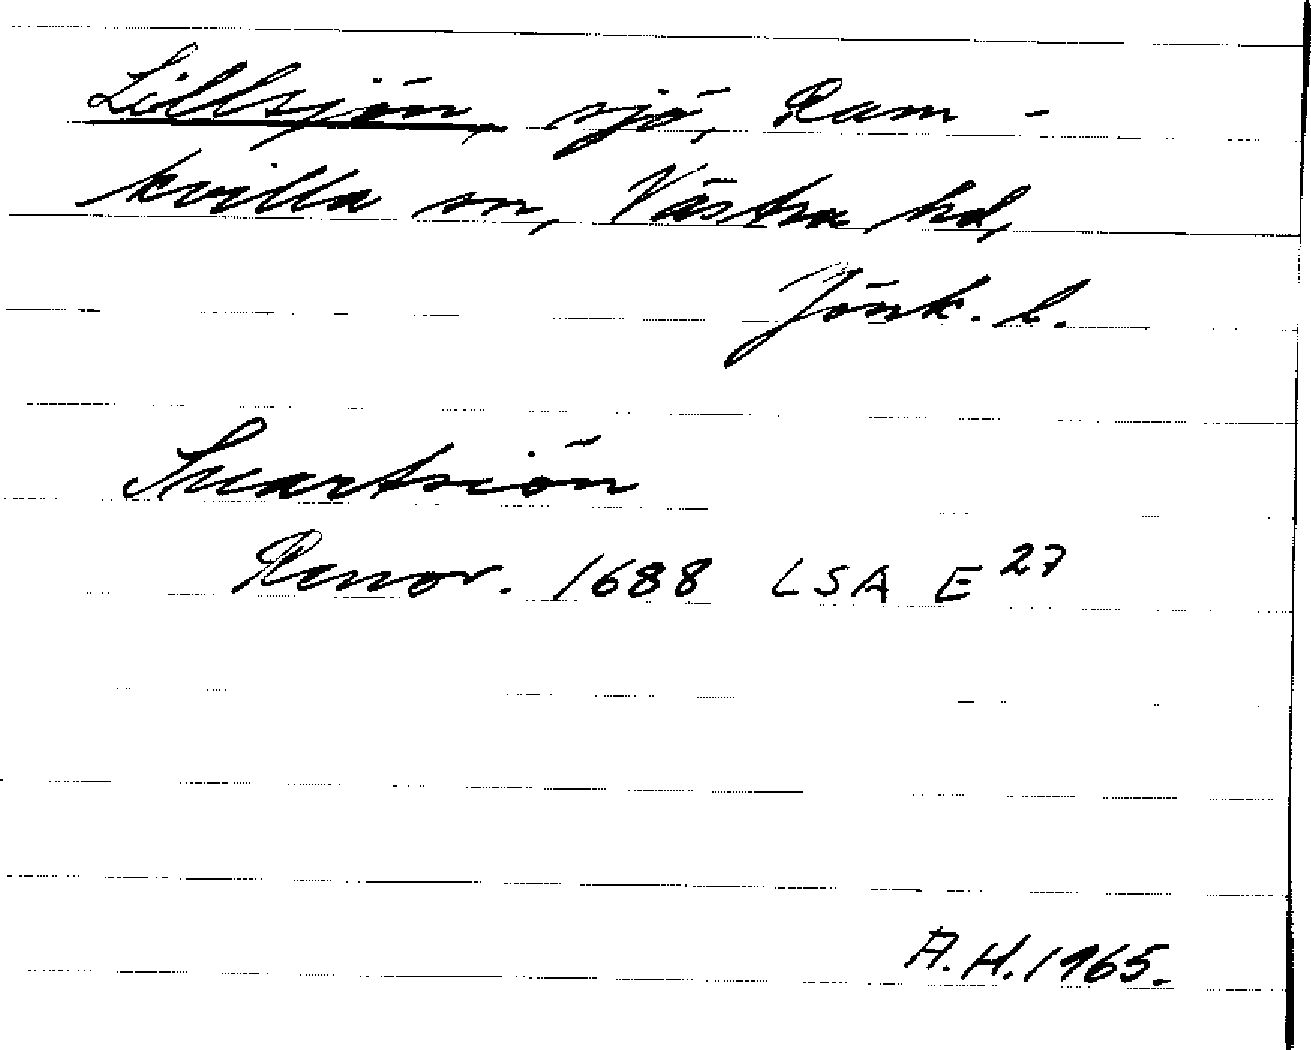 Lillsjön, sjö, Ram-
kvilla sn, Västra hd,
Jönk. l.
Suartsiön
Renov. 1688 LSA E 27
A.H. 1965.